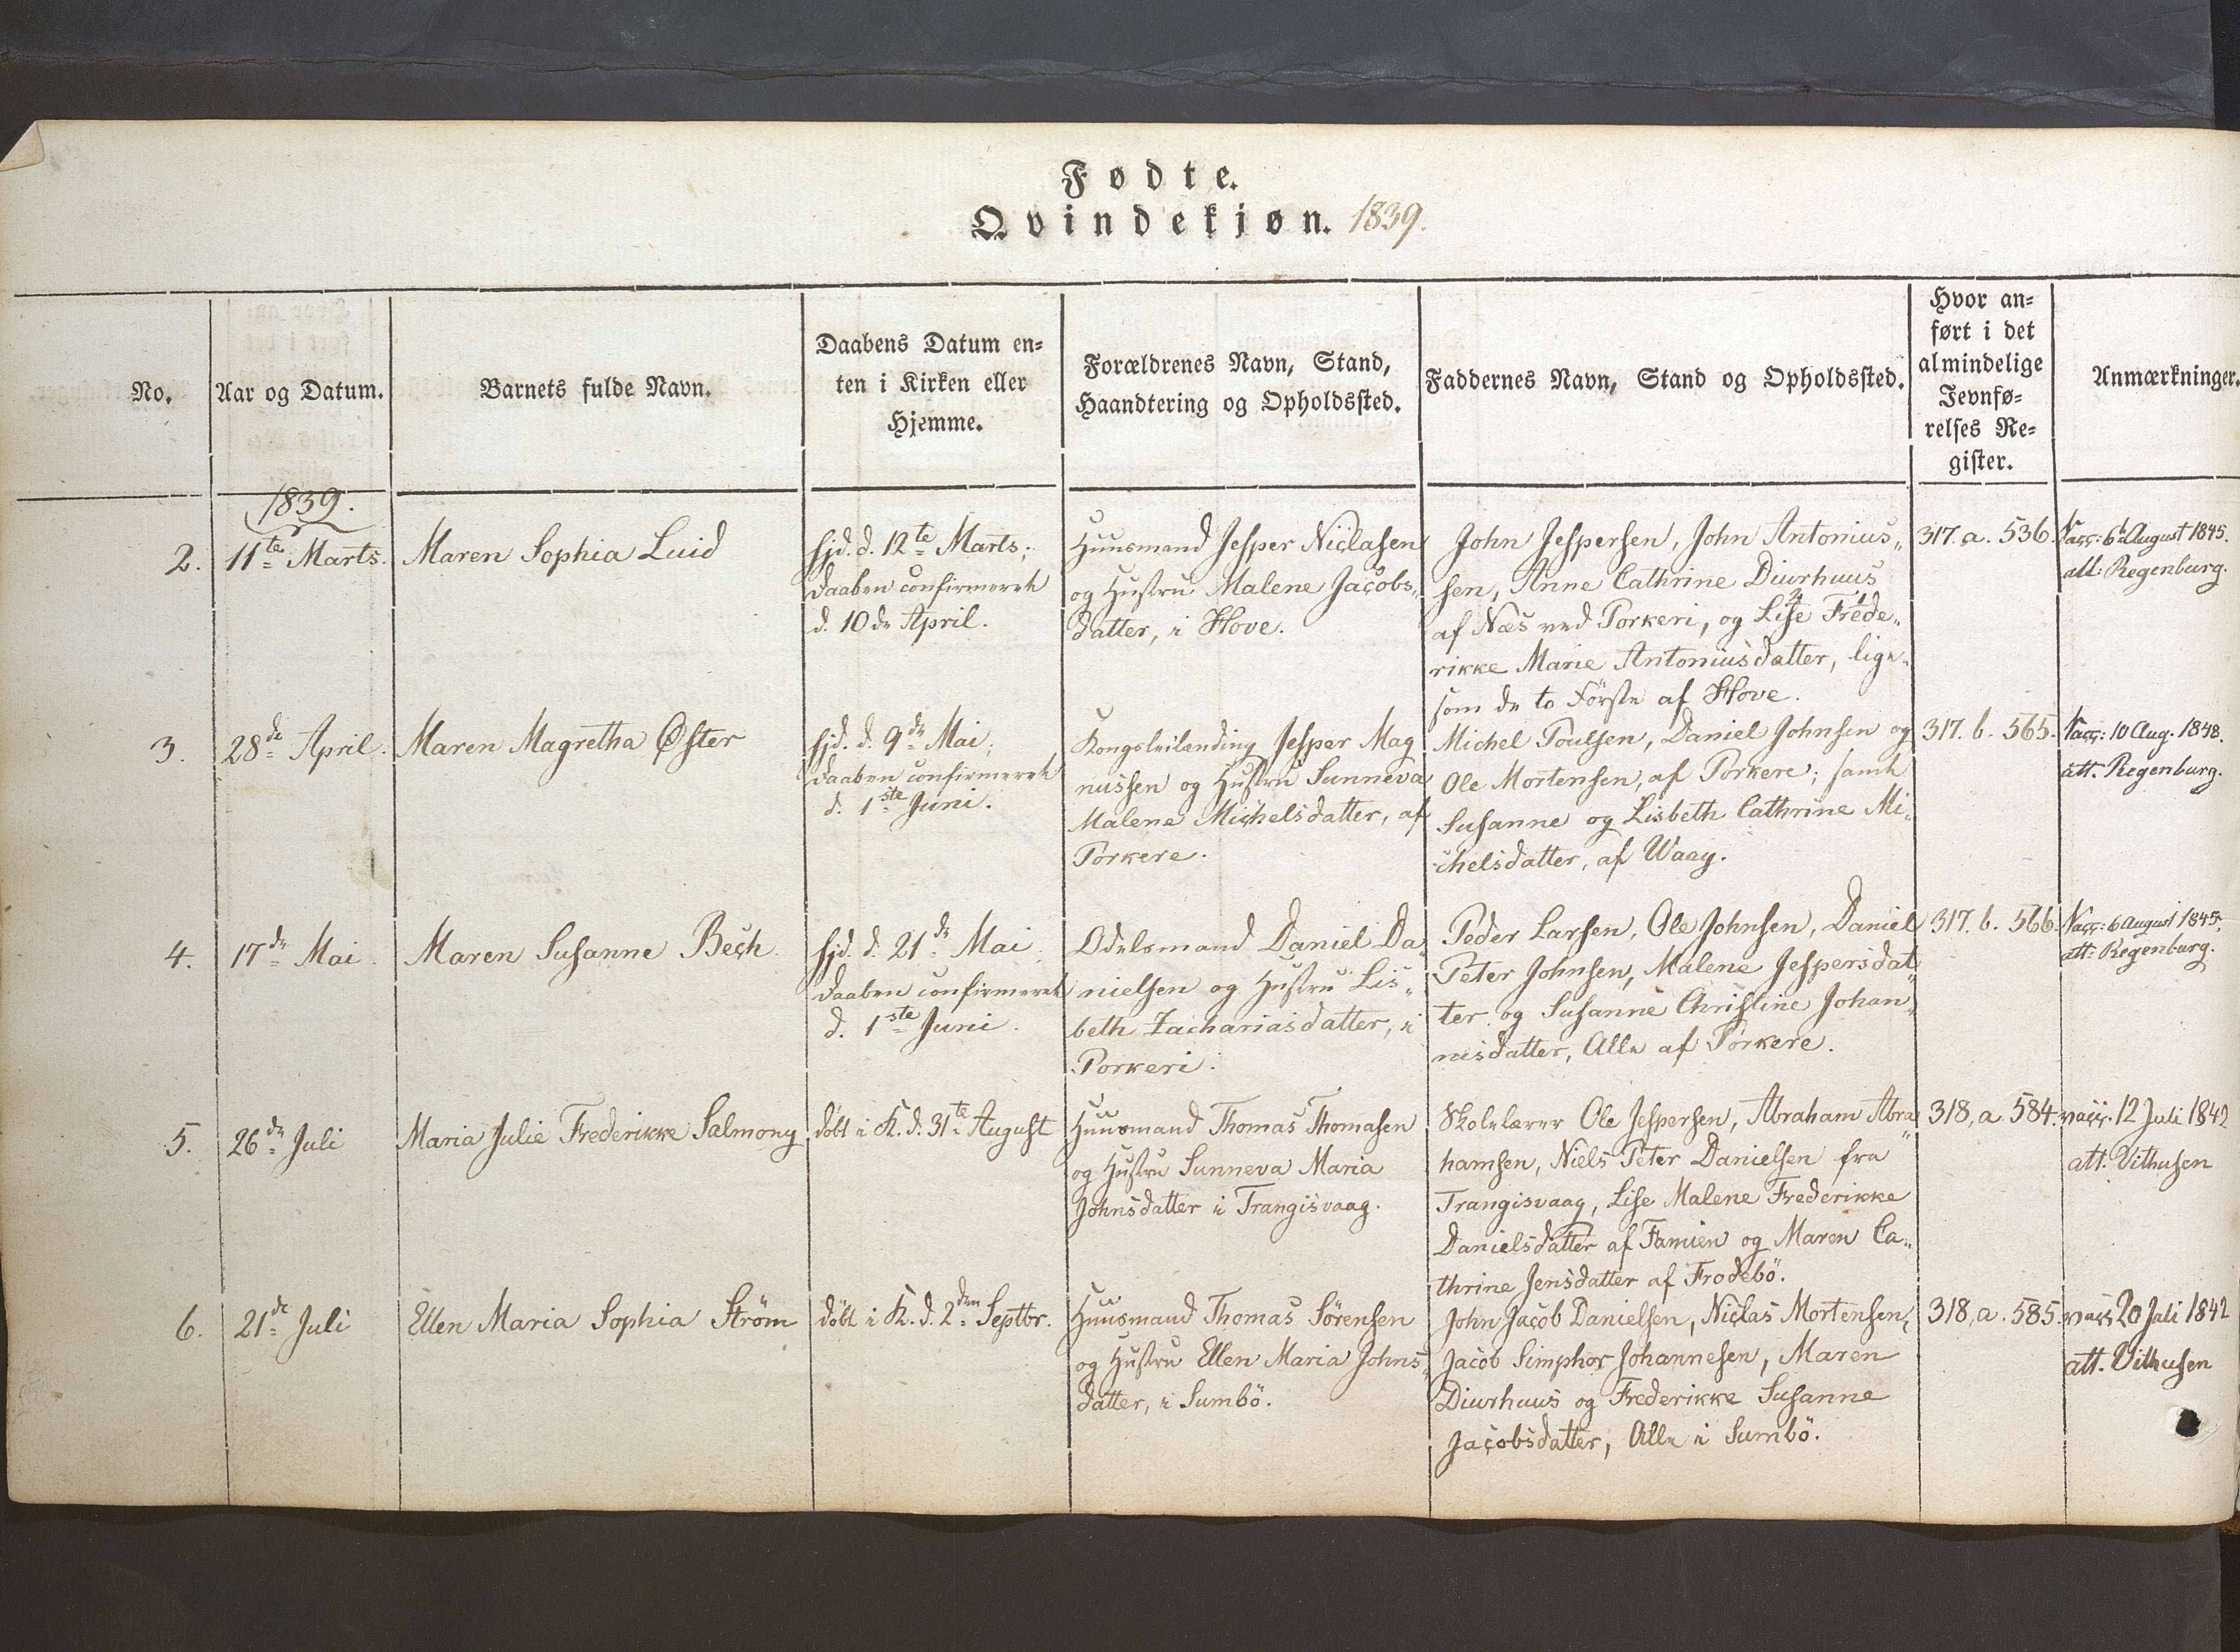 Fødte.
Qvindekjøn. 1839.
No.
Aar og Datum.
Barnets fulde Navn.
Daabens Datum en=
ten i Kirken eller
Hjemme.
Forældrenes Navn, Stand,
Haandtering og Opholdssted.
Faddernes Navn, Stand og Opholdssted.
Hvor an=
ført i det
almindelige
Jevnfø=
relses Re=
gister.
Anmærkninger.
1839.
2.
11te Marts.
Maren Sophia Luid
hjd. d. 12te Marts;
Daaben confirmeret
d. 10de April.
Huusmand Jesper Niclasen
og Hustru Malene Jacobs„
datter, i Hove.
John Jespersen, John Antonius„
sen, Anne Cathrine Diurhuus
af Næs ved Porkeri, og Lise Frede„
rikke Marie Antoniusdatter, lige„
som de to Første af Hove.
317. a. 536.
Vacc: 6t August 1845.
att: Regenburg.
3.
28de April.
Maren Magretha Øster
hjd. d. 9de Mai;
Daaben confirmeret
d. 1ste Juni.
Kongsleilending Jesper Mag
nussen og Hustru Sunneva
Malene Michelsdatter, af
Porkere.
Michel Poulsen, Daniel Johnsen og
Ole Mortensen, af Porkere; samt
Susanne og Lisbeth Cathrine Mi„
chelsdatter, af Waag.
317. b. 565.
Vacc: 10 Aug. 1848.
att. Regenburg.
4.
17de Mai
Maren Susanne Bech.
hjd. d. 21de Mai
Daaben confirmeret
d. 1ste Juni.
Odelsmand Daniel Da„
nielsen og Hustru Lis„
beth Zachariasdatter, i
Porkeri.
Peder Larsen, Ole Johnsen, Daniel
Peter Johnsen, Malene Jespersdat„
ter og Susanne Christine Johan„
nisdatter, Alle af Porkere.
317. b. 566.
Vacc: 6 August 1845.
att: Regenburg.
5.
26de Juli
Maria Julie Frederikke Salmony
döbt i K. d. 31te August
Huusmand Thomas Thomasen
og Hustru Sunneva Maria
Johnsdatter i Trangisvaag.
Skolelærer Ole Jespersen, Abraham Abra„
hamsen, Niels Peter Danielsen fra
Trangisvaag, Lise Malene Frederikke
Danielsdatter af Famien og Maren Ca„
thrine Jensdatter af Frodebö.
318, a. 584.
vacc. 12 Juli 1842
att. Vithusen
6.
21de Juli
Ellen Maria Sophia Ström
döbt i K. d. 2den Septbr.
Huusmand Thomas Sörensen
og Hustru Ellen Maria Johns„
datter, i Sumbö.
John Jacob Danielsen, Niclas Mortensen,
Jacob Simphor Johannesen, Maren
Diurhuus og Frederikke Susanne
Jacobsdatter, Alle i Sumbö.
318, a. 585.
vacc 20 Juli 1842
att. Vithusen